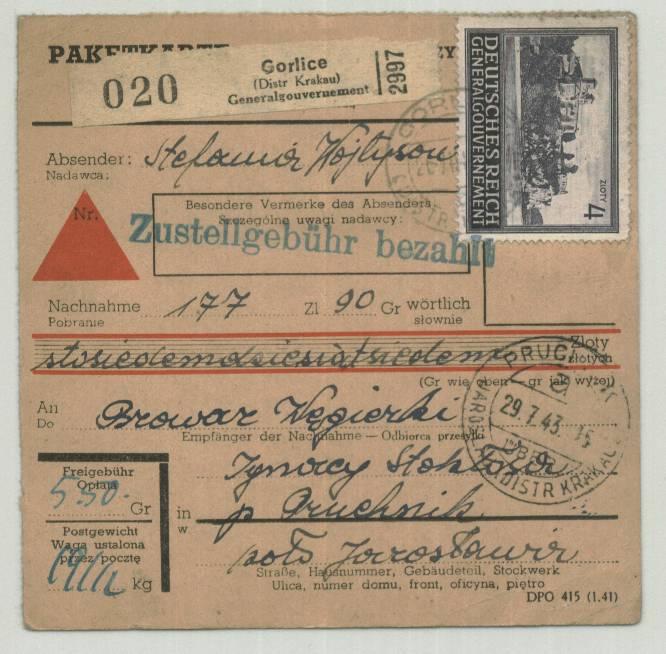 PAKETKARTE ZY
Gorlice
(Distr Krakau)
Generalgouvernement
020
2997
DEUTSCHES REICH
GENERALGOUVERNEMENT
4 ZŁOTY
Absender: Stefania
Nadawca:
Nr.
Besondere Vermerke des Absenders
Szczególne uwagi nadawcy:
Zustellgebühr bezahlt
Nachnahme 177 Zl 90 Gr wörtlich
Pobranie słownie
stosiedemdziesiątsiedem Zloty
złotych
(Gr wie oben — gr jak wyżej)
PRUCHNIK
29.7.43.15
DISTR KRAKAU
An Browar Węgierki
Do
Empfänger der Nachnahme — Odbiorca przesyłki
Freigebühr
Opłata
530 Gr
Ignacy Stokłosa
Postgewicht
Waga ustalona
przez pocztę
kg
in p Pruchnik
w
Jarosławia
Straße, Hausnummer, Gebäudeteil, Stockwerk
Ulica, numer domu, front, oficyna, piętro
DPO 415 (1.41)